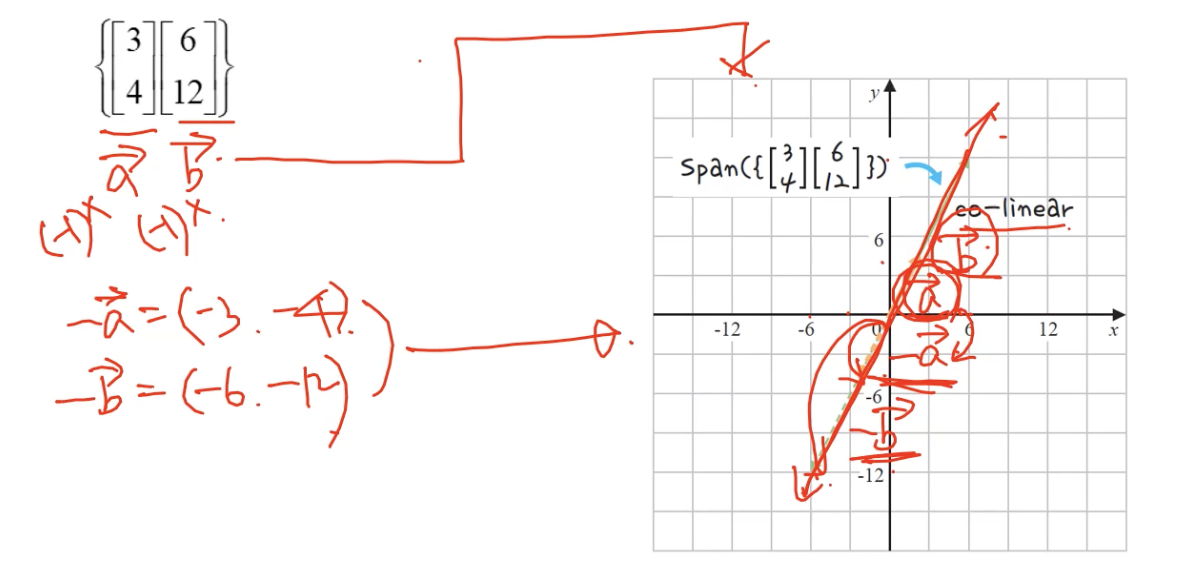 {[3 4][6 12]}
a⃗ b⃗
(-1)× (-1)×
-a⃗ = (-3. -4)
-b⃗ = (-6. -12)
y
Span({[3 4][6 12]})
co-linear
6
b⃗
a⃗
-12 -6 0 6 12 x
-a⃗
-6
-b⃗
-12